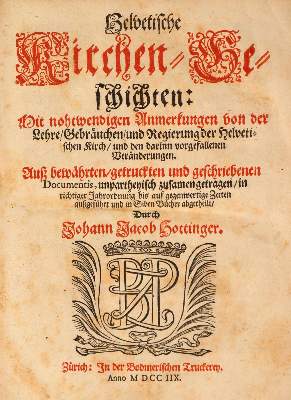 Helvetische
Kirchen-Ge-
schichten:
Mit nohtwendigen Anmerkungen von der
Lehre/Gebräuchen/und Regierung der Helveti-
schen Kirch/und den darinn vorgefallenen
Veränderungen.
Auß bewährten/getruckten und geschriebenen
Documentis, unpartheyisch zusamengetragen/in
richtiger Jahrordnung bis auf gegenwertige Zeiten
außgeführt und in Siben Bücher abgetheilt/
Durch
Johann Jacob Hottinger.
Zürich: In der Bodmerischen Truckerey.
Anno M DCC IIX.